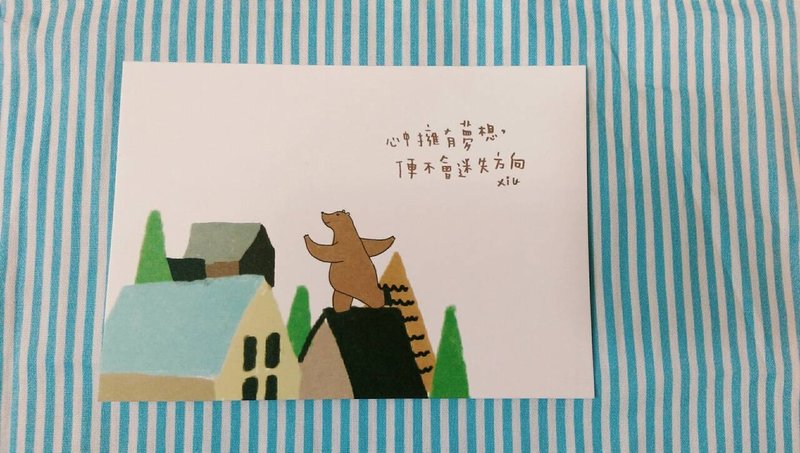 心中擁有夢想，
便不會迷失方向
xiu